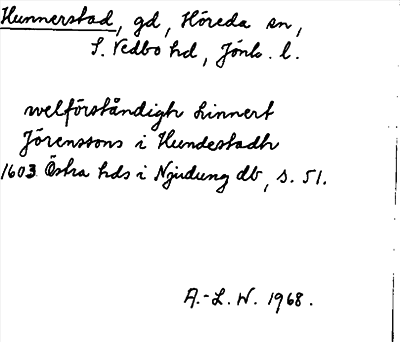 Hunnerstad, gd, Höreda sn,
S. Vedbo hd, Jönk. l.
welförståndigh Linnert
Jörenssons i Hundestadh
1603 Östra hds i Njudung db, s. 51.
A.-L. N. 1968.